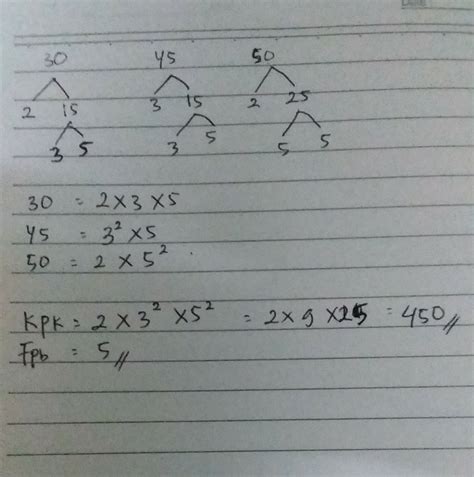 30 45 50
2 15 3 15 2 25
3 5 3 5 5 5
30 = 2 x 3 x 5
45 = 3² x 5
50 = 2 x 5²
KPK = 2 x 3² x 5² = 2 x 9 x 25 = 450 //
Fpb = 5 //